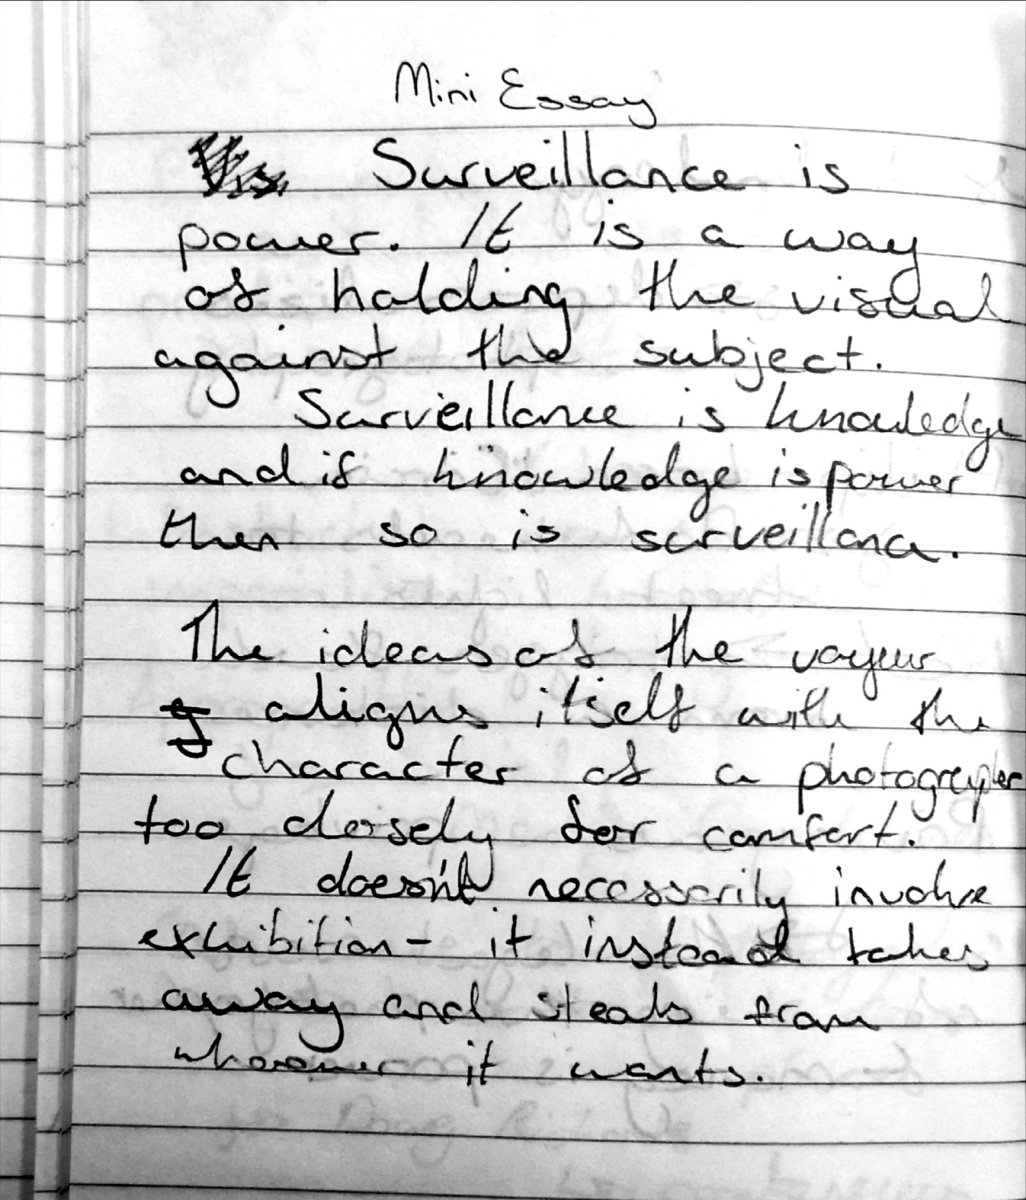 Mini Essay
Surveillance is
power. It is a way
of holding the visual
against the subject.
Surveillance is knowledge
and if knowledge is power
then so is surveillance.
The ideas of the voyeur
aligns itself with the
character of a photographer
too closely for comfort.
It doesn't necessarily involve
exhibition - it instead takes
away and steals from
whomever it wants.